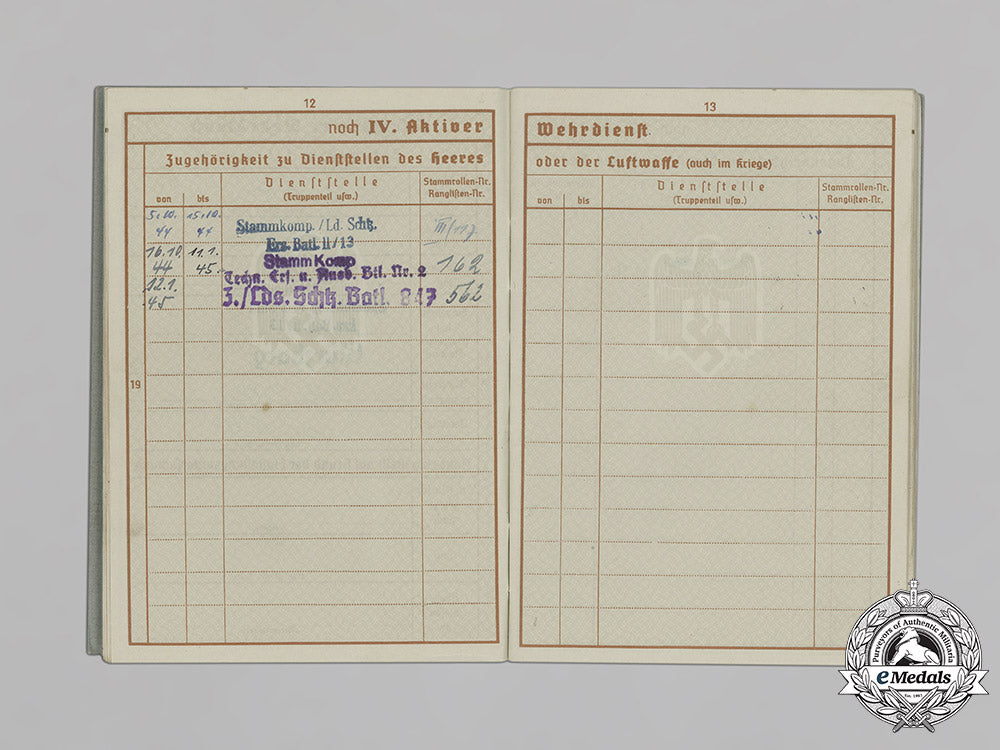 12
noch IV. Aktiver
Zugehörigkeit zu Dienststellen des Heeres
von bis
Dienststelle
(Truppenteil usw.)
Stammrollen-Nr.
Ranglisten-Nr.
5.10. 15.10.
44 44
Stammkomp./Ld. Schtz.
Ers. Batl. II/13
16.10. 11.1.
44 45
Stamm Komp
Techn. Ers. u. Ausb. Btl. Nr. 2
162
12.1.
45
3./Lds. Schtz. Batl.
562
19
13
Wehrdienst
oder der Luftwaffe (auch im Kriege)
von bis
Dienststelle
(Truppenteil usw.)
Stammrollen-Nr.
Ranglisten-Nr.
Purveyors of Authentic Militaria
eMedals